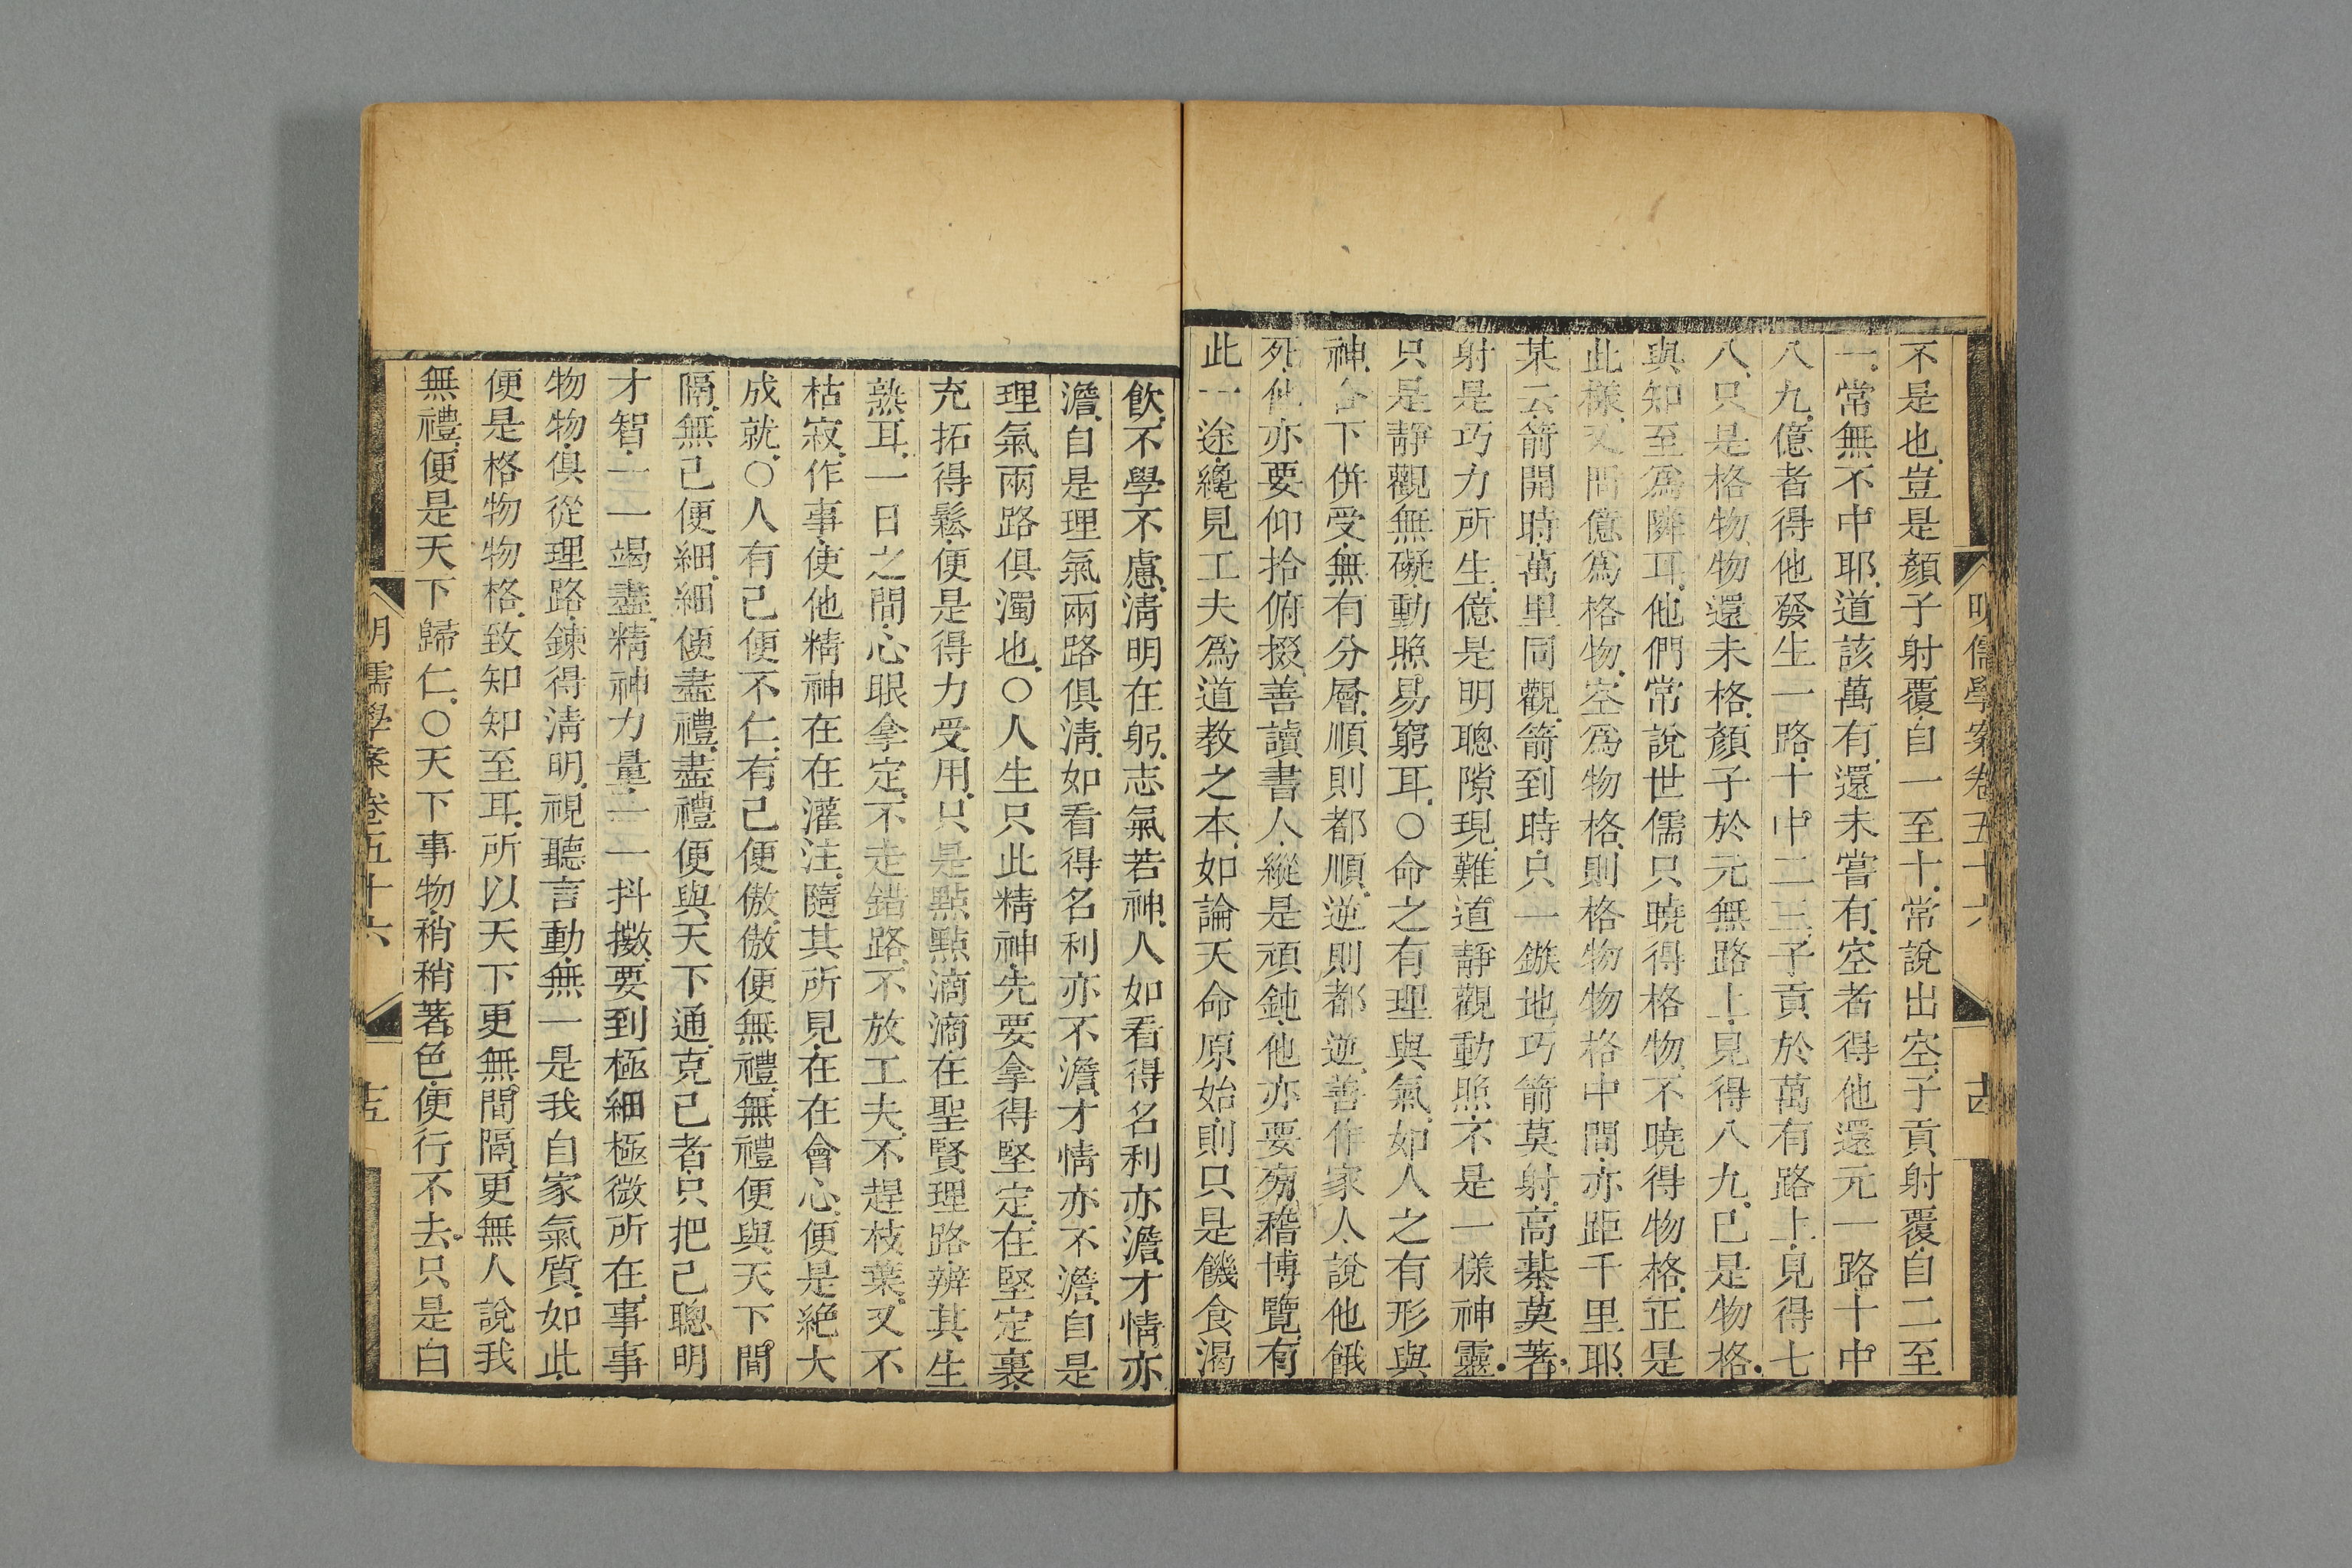 明儒學案卷五十六
古
不是也豈是顏子射覆自一至十常說出空子貢射覆自二至
一常無不中耶道該萬有還未嘗有空者得他還元一路十中
八九億者得他發生一路十中二三子貢於萬有路上見得七
八只是格物物還未格顏子於元無路上見得八九已是物格
與知至爲隣耳他們常說世儒只曉得格物不曉得物格正是
此樣又問億爲格物空爲物格則格物物格中間亦距千里耶
某云箭開時萬里同觀箭到時只一鏃地巧箭莫射高棊莫著
射是巧力所生億是明聰隙現難道靜觀動照不是一樣神靈
只是靜觀無礙動照易窮耳○命之有理與氣如人之有形與
神合下併受無有分層順則都順逆則都逆善作家人說他餓
死他亦要仰拾俯掇善讀書人縱是頑鈍他亦要旁稽博覽有
此一途纔見工夫爲道教之本如論天命原始則只是饑食渴
飲不學不慮淸明在躬志氣若神人如看得名利亦澹才情亦
澹自是理氣兩路俱淸如看得名利亦不澹才情亦不澹自是
理氣兩路俱濁也○人生只此精神先要拿得堅定在堅定裏
充拓得鬆便是得力受用只是點點滴滴在聖賢理路辨其生
熟耳一日之間心眼拿定不走錯路不放工夫不趕枝葉又不
枯寂作事使他精神在在灌注隨其所見在在會心便是絕大
成就○人有己便不仁有己便傲傲便無禮無禮便與天下間
隔無己便細細便盡禮盡禮便與天下通克己者只把己聰明
才智一一竭盡精神力量一一抖擻要到極細極微所在事事
物物俱從理路鍊得淸明視聽言動無一是我自家氣質如此
便是格物物格致知知至耳所以天下更無間隔更無人說我
無禮便是天下歸仁○天下事物稍稍著色便行不去只是白
明儒學案卷五十六
十五